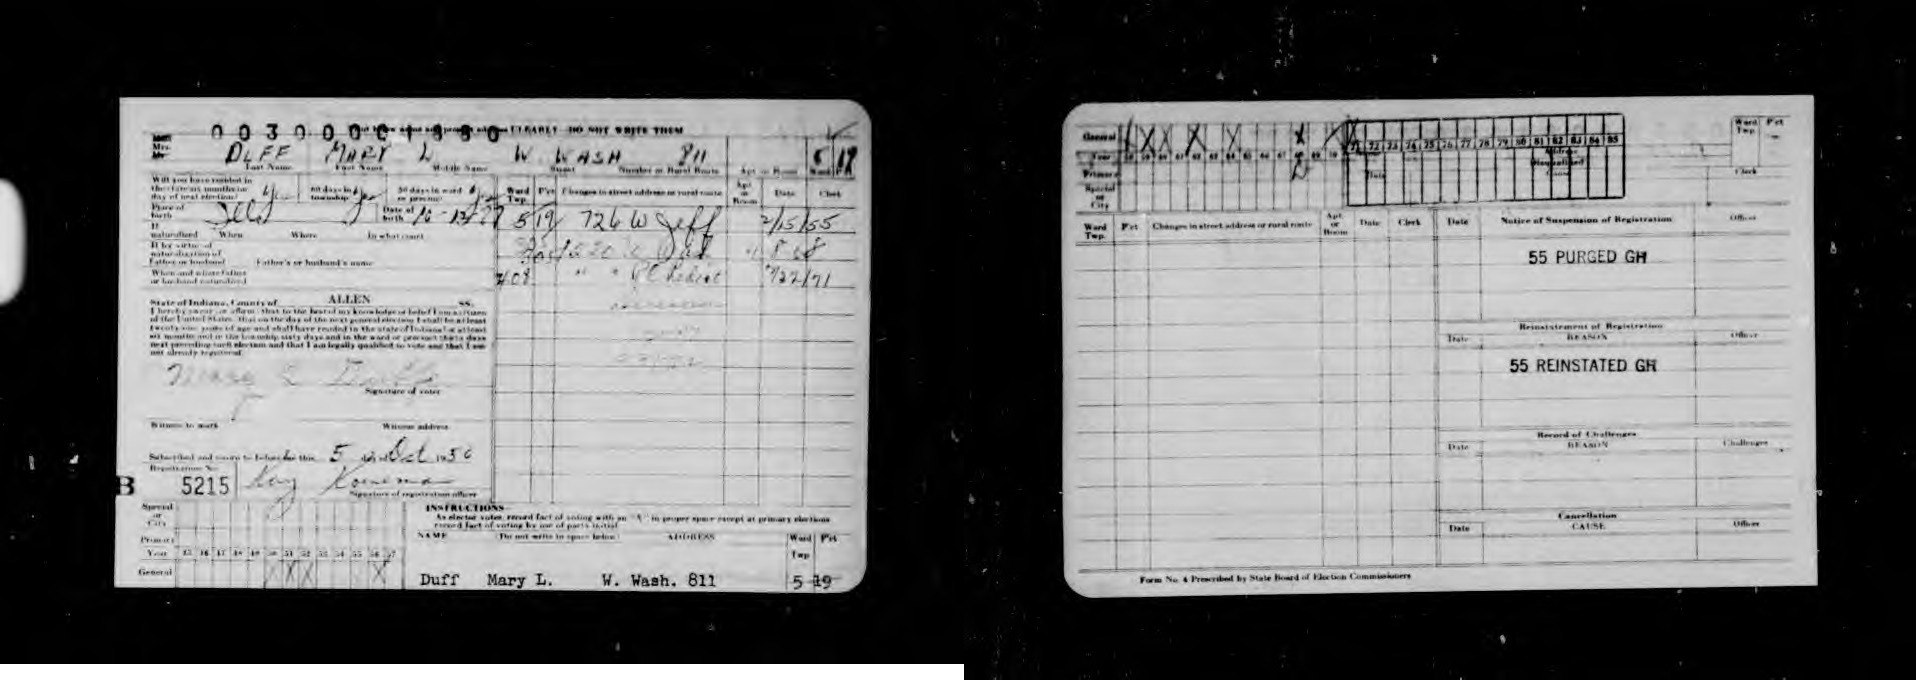 00300001880 CLEARLY DO NOT WRITE THEM
Mrs. DUFF MARY L W. WASH 811 5 19
Last Name First Name Middle Name Street Number or Rural Route Apt. or Room Ward Pct
Will you have resided in the state six months on day of next election? yes 60 days in township yes 30 days in ward or precinct yes
Place of birth Date of birth 10-12-27
If naturalized When Where In what court
If by virtue of naturalization of Father or husband Father's or husband's name
When and where father or husband naturalized
State of Indiana, County of ALLEN SS.
I hereby swear or affirm that to the best of my knowledge or belief I am a citizen
of the United States, that on the day of the next general election I shall be at least
twenty-one years of age and shall have resided in the state of Indiana for at least
six months and in the township sixty days and in the ward or precinct thirty days
next preceding such election and that I am legally qualified to vote and that I am
not already registered.
Mary L Duff
Signature of voter
Witness to mark Witness address
Subscribed and sworn to before me this 5 Oct 1950
Registration No.
B 5215 Kay
Signature of registration officer
Special or City
Primary
Year 45 46 47 48 49 50 51 52 53 54 55 56 57
General X X X X
Ward Twp. Pct Changes in street address or rural route Apt. or Room Date Clerk
5 19 726 W Jeff 2/15/55
8 68
208 " " 7/22/71
INSTRUCTIONS
As elector votes, record fact of voting with an "X" in proper space except at primary elections
record fact of voting by use of party initial
NAME (Do not write in space below) ADDRESS Ward Twp Pct
Duff Mary L. W. Wash. 811 5 19
General X X X X X
Year 58 59 60 61 62 63 64 65 66 67 68 69 70 71 72 73 74 75 76 77 78 79 80 81 82 83 84 85
Primary D
Special or City
Date Address Cause
Ward Twp. Pct
Clerk
Ward Twp. Pct Changes in street address or rural route Apt. or Room Date Clerk
Date Notice of Suspension of Registration Officer
55 PURGED GH
Reinstatement of Registration
Date REASON Officer
55 REINSTATED GH
Record of Challenges
Date REASON Challenges
Cancellation
Date CAUSE Officer
Form No. 4 Prescribed by State Board of Election Commissioners